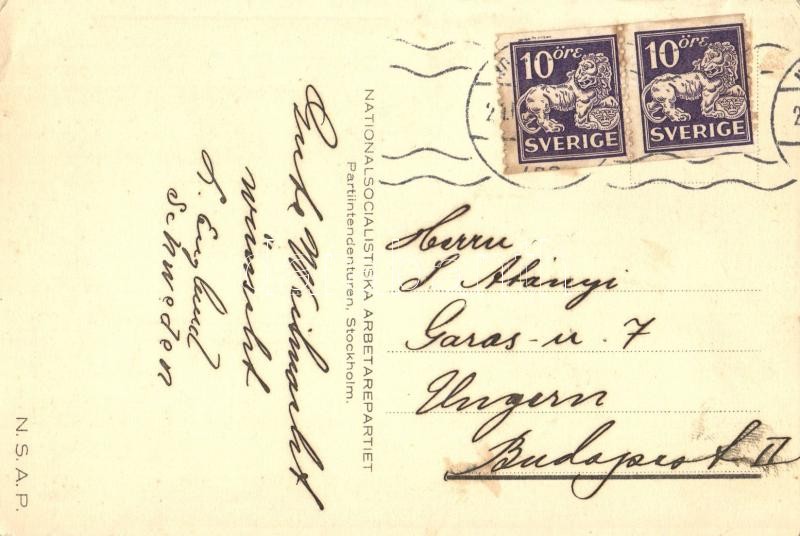 10 öre
SVERIGE
10 öre
SVERIGE
NATIONALSOCIALISTISKA ARBETAREPARTIET
Partiintendenturen, Stockholm.
Gute Weihnacht
wünscht
Englund
Schweden
Herrn
Abányi
Garas-u. 7
Ungern
Budapest II
N.S.A.P.